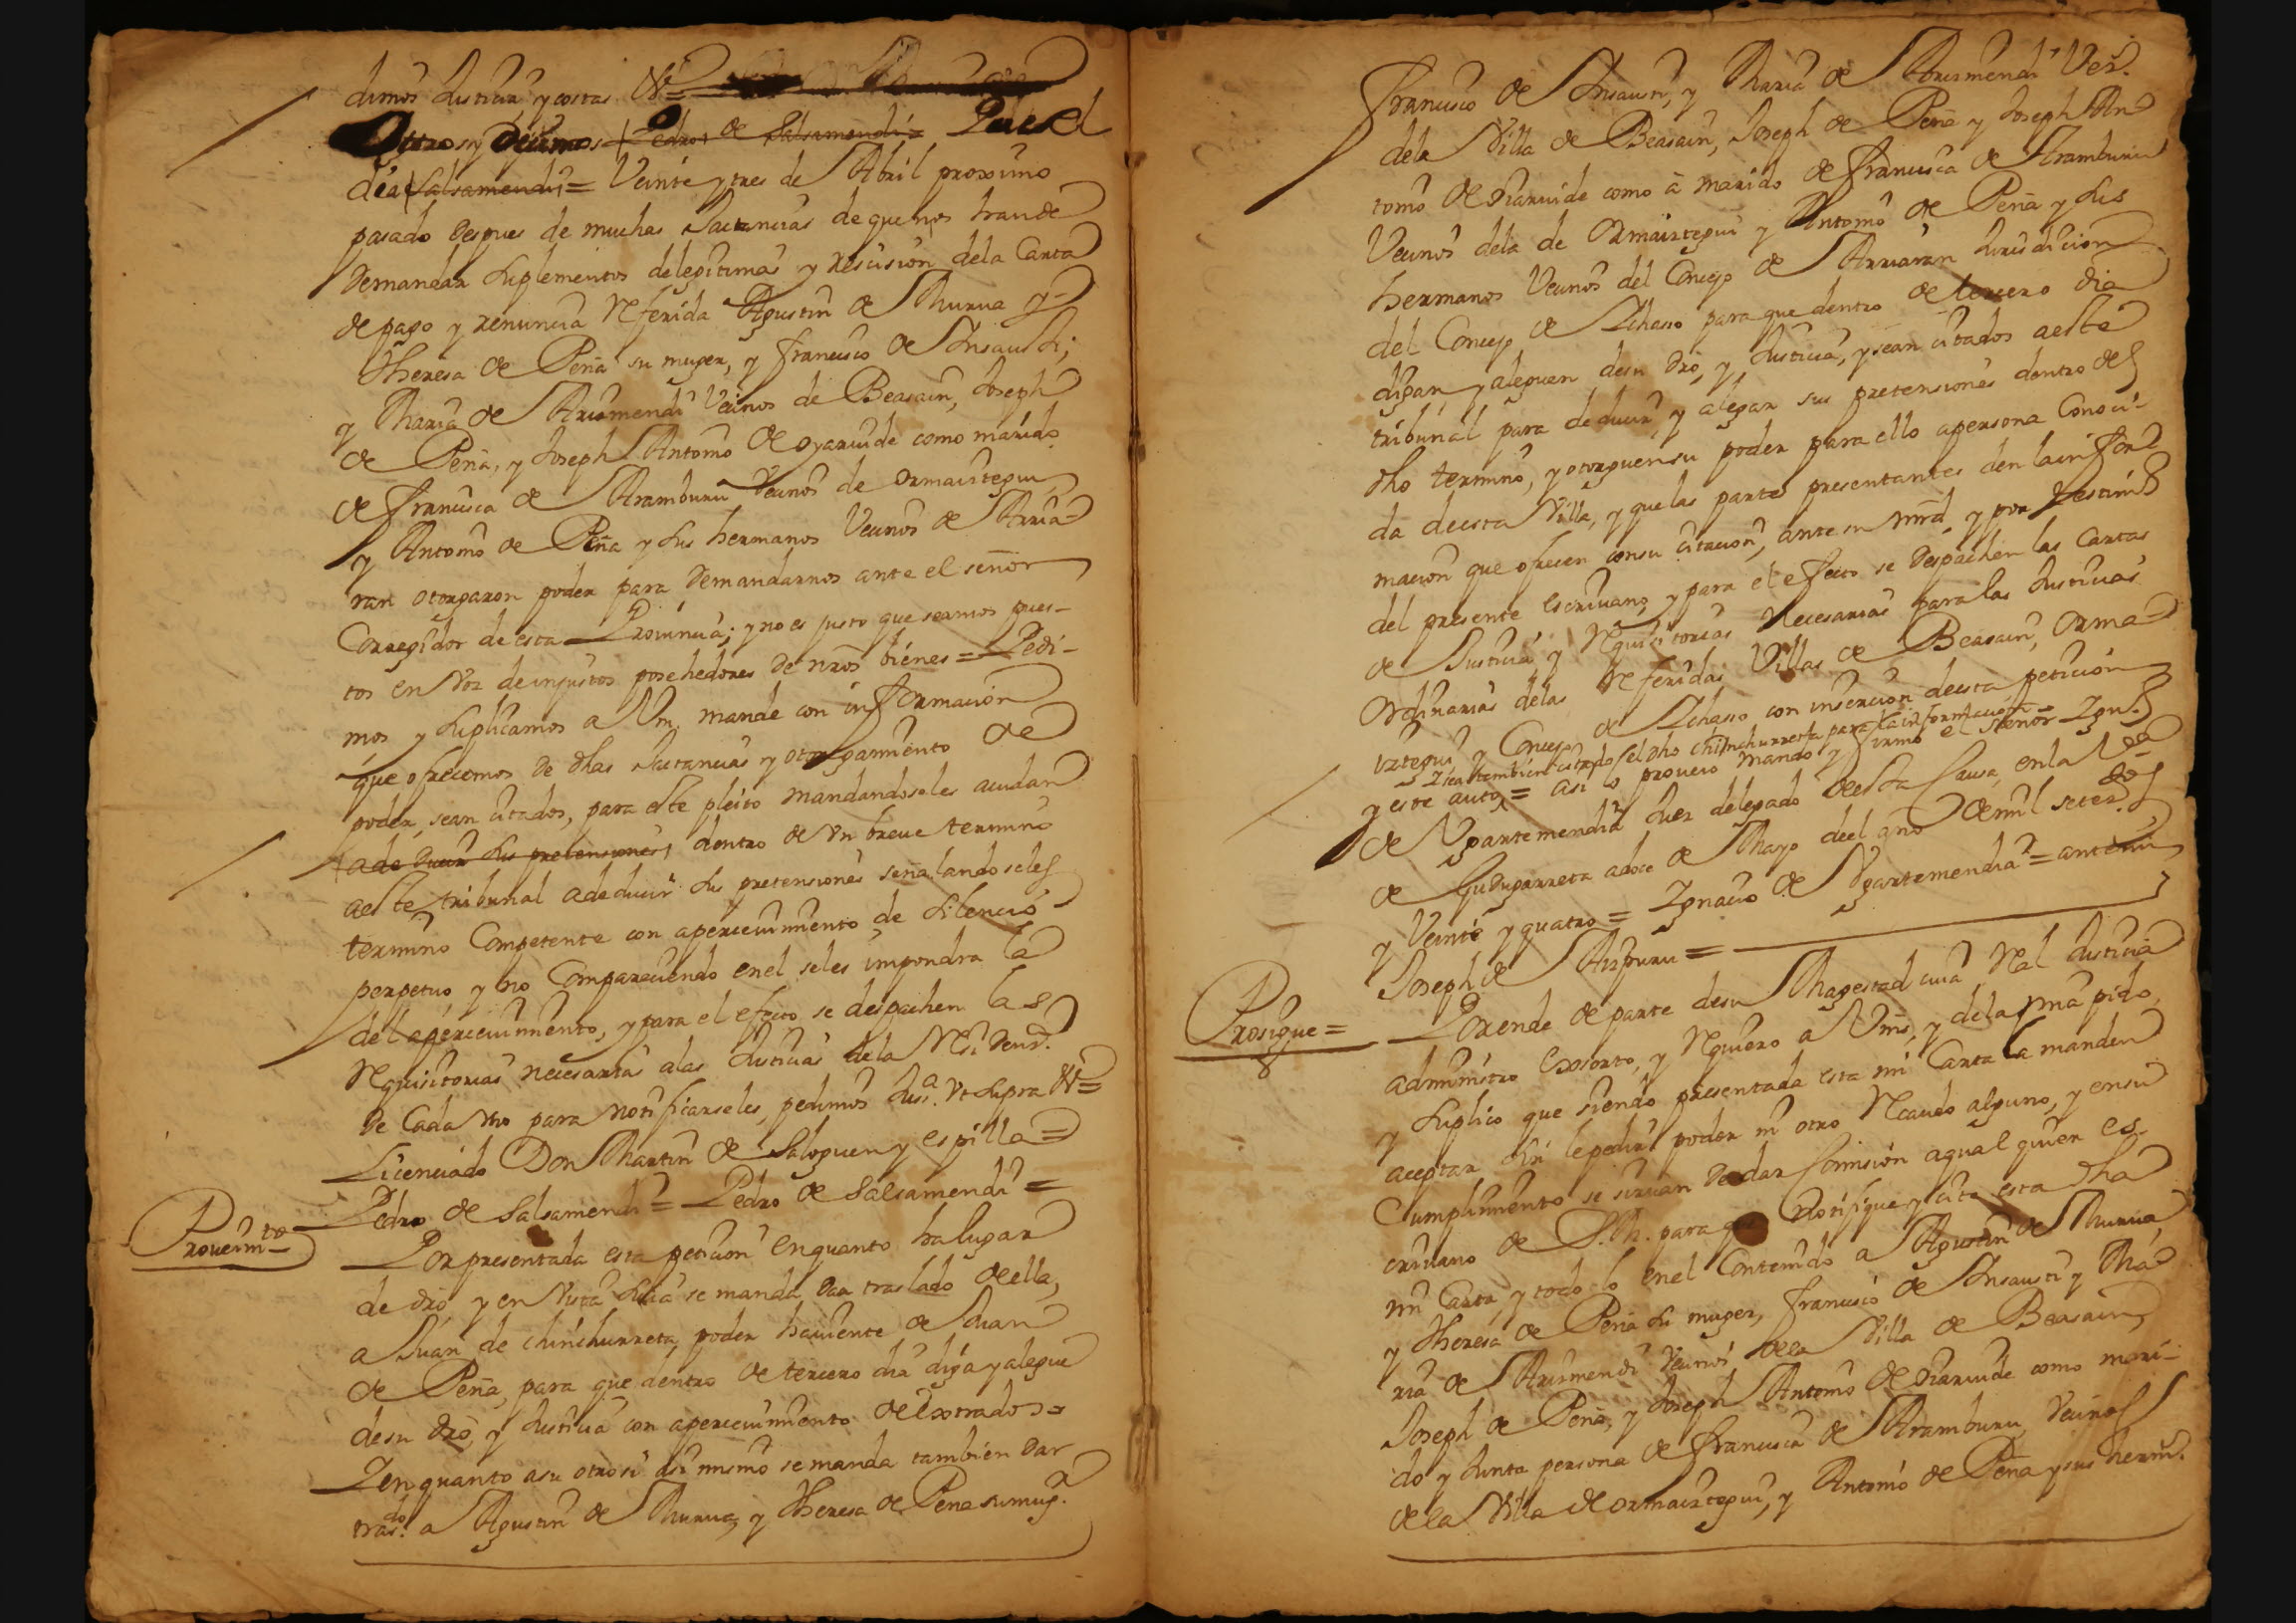 dimos Justicia y costas &=
Ottrosy Decimos Pedro de Salsamendi= Que el
dia Salsamendi= Veinte y tres de Abril proximo
pasado despues de muchas Jactancias de que nos han de
demandar suplementos de lexitimas y rescision dela Carta
de pago y renuncia Referida Agustin de Murua y-
Theresa de Peña su muger, y francisco de Insausti;
y Maria de Arismendi Vecinos de Beasain, Joseph
de Peña, y Joseph Antonio de oyaruide como marido
de francisca de Aramburu Vecinos de ormaiztegui,
y Antonio de Peña y sus hermanos Vecinos de Arria-
ran otorgaron poder para demandarnos ante el señor
Corregidor de esta Provincia; y no es justo que seamos pues-
tos en Voz de injustos posehedores de nros bienes= Pedi-
mos y suplicamos a Vm. mande con informacion
que ofrecemos de dhas Jactancias y otorgamiento de
poder, sean citados, para este pleito mandandoseles acudan
a deducir sus pretensiones, dentro de vn breue termino
aeste tribunal adeducir sus pretensiones señalandoseles
termino Competente con aperceuimiento de silencio
perpetuo, y no Compareciendo enel seles impondra la
del aperceuimiento, y para el efecto se despachen las
Requisitorias necesarias alas Justicias dela Residena.
de Cada vno para notificarseles, pedimos Jusa. Vt supra &=
Licenciado Don Martin de Saloguen y espilla=
Pedro de Salsamendi= Pedro de Salsamendi=
Proueimto
Por presentada esta peticion enquanto halugar
de dro, y en Vista suia se manda dar traslado de ella,
a Juan de chinchurreta, poder hauiente de Juan
de Peña, para que dentro de tercero dia diga y alegue
desu dro, y Justicia con aperceuimiento de Extrados=
Yen quanto asu otrosi asi mismo se manda tambien dar
trasdo. a Agustin de Murua, y Theresa de Peña sumugr.
Francisco de Insausti, y Maria de Arismendi Vezs.
dela Villa de Beasain, Joseph de Peña y Joseph An
tonio de oiaruide como à marido de francisca de Aramburu
Vecinos dela de Ormaiztegui y Antonio de Peña y sus
hermanos Vecinos del Concejo de Arriaran Jurisdicion
del Concejo de Ichaso para que dentro de tercero dia
digan y aleguen desu dro, y Justicia, y sean citados aeste
tribunal para deducir, y alegar sus pretensiones dentro del
dho termino, y otorguen su poder para ello apersona Conoci-
da deesta Villa, y que las partes presentantes den la infor-
macion que ofrecen consu citacion, ante su mrd, y por Testimo
del presente escriuano, y para el efecto se despachen las Cartas
de Justicia, y Requisitorias Necesarias para las Justicias
Ordinarias delas Referidas Villas de Beasain, Orma-
iztegui, y Concejo de Ichaso con insercion deesta peticion
Ysea tambien citado el dho chinchurreta para la informacion
y este auto= asi lo proueio mando y firmo el señor Ign.
de Ygartemendia Juez delegado deesta Causa, enla Va
de Gudugarreta adoce de Mayo deel año de mil setezos
y Veinte y quatro= Ygnacio de Ygartemendia= antemi
Joseph de Aizpuru=
Prosigue=
Porende de parte desu Magestad cuia Real Justicia
administro Exsorto, y Requiero a Vms, y dela mia pido,
y suplico que siendo presentada esta mi Carta la manden
aceptar sin lepedir poder ni otro Recaudo alguno, y ensu
Cumplimiento se siruan de dar Comision aqual quier es-
criuano de S.M. para que notifique y cite esta dha
mi Carta, y todo lo enel Contenido a Agustin de Murua,
y Theresa de Peña su muger, francisco de Insausti y Ma-
ria de Arismendi Vecinos dela Villa de Beasain,
Joseph de Peña, y Joseph Antonio de oiaruide como mari-
do y Junta persona de francisca de Aramburu Vecinos
dela Villa de ormaiztegui, y Antonio de Peña y sus hermos.